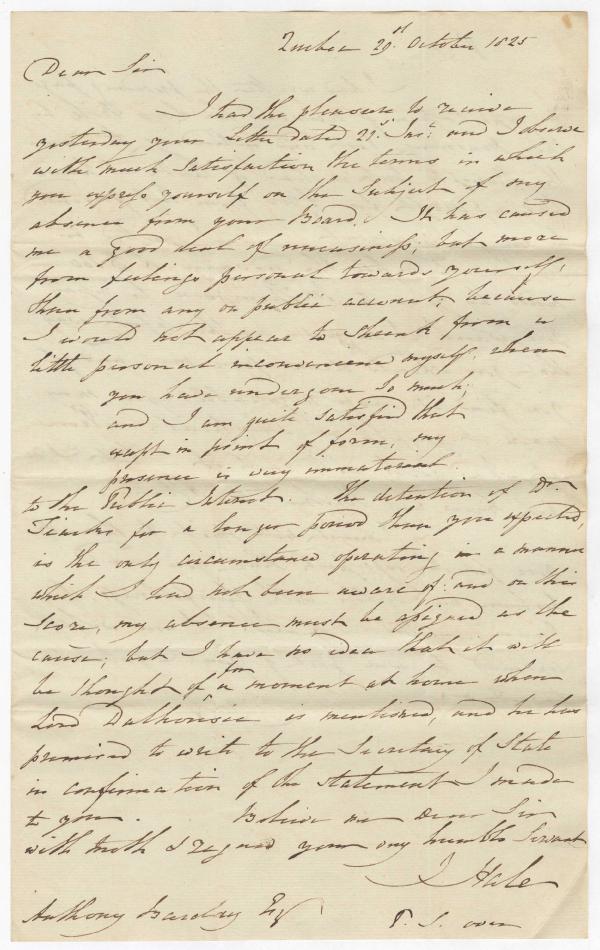 Quebec 29th October 1825
Dear Sir
I had the pleasure to receive
yesterday your letter dated 21st Inst. and I observe
with much satisfaction the terms in which
you express yourself on the Subject of my
absence from your Board. It has caused
me a good deal of uneasiness, but more
from feelings personal towards yourself,
than from any on public account, because
I would not appear to shrink from a
little personal inconvenience myself, when
you have undergone so much;
and I am quite satisfied that
except in point of form, my
presence is very immaterial
to the Public Interest. The detention of Dr.
Tiarks for a longer period than you expected,
is the only circumstance operating in a manner
which I had not been aware of: and on this
Score, my absence must be assigned as the
cause; but I have no idea that it will
be thought of for a moment at home when
Lord Dalhousie is mentioned, and he has
promised to write to the Secretary of State
in confirmation of the statement I made
to you. Believe me Dear Sir
with truth & regard your very humble Servant
J Hale
Anthony Barclay Esqr
P. S. over